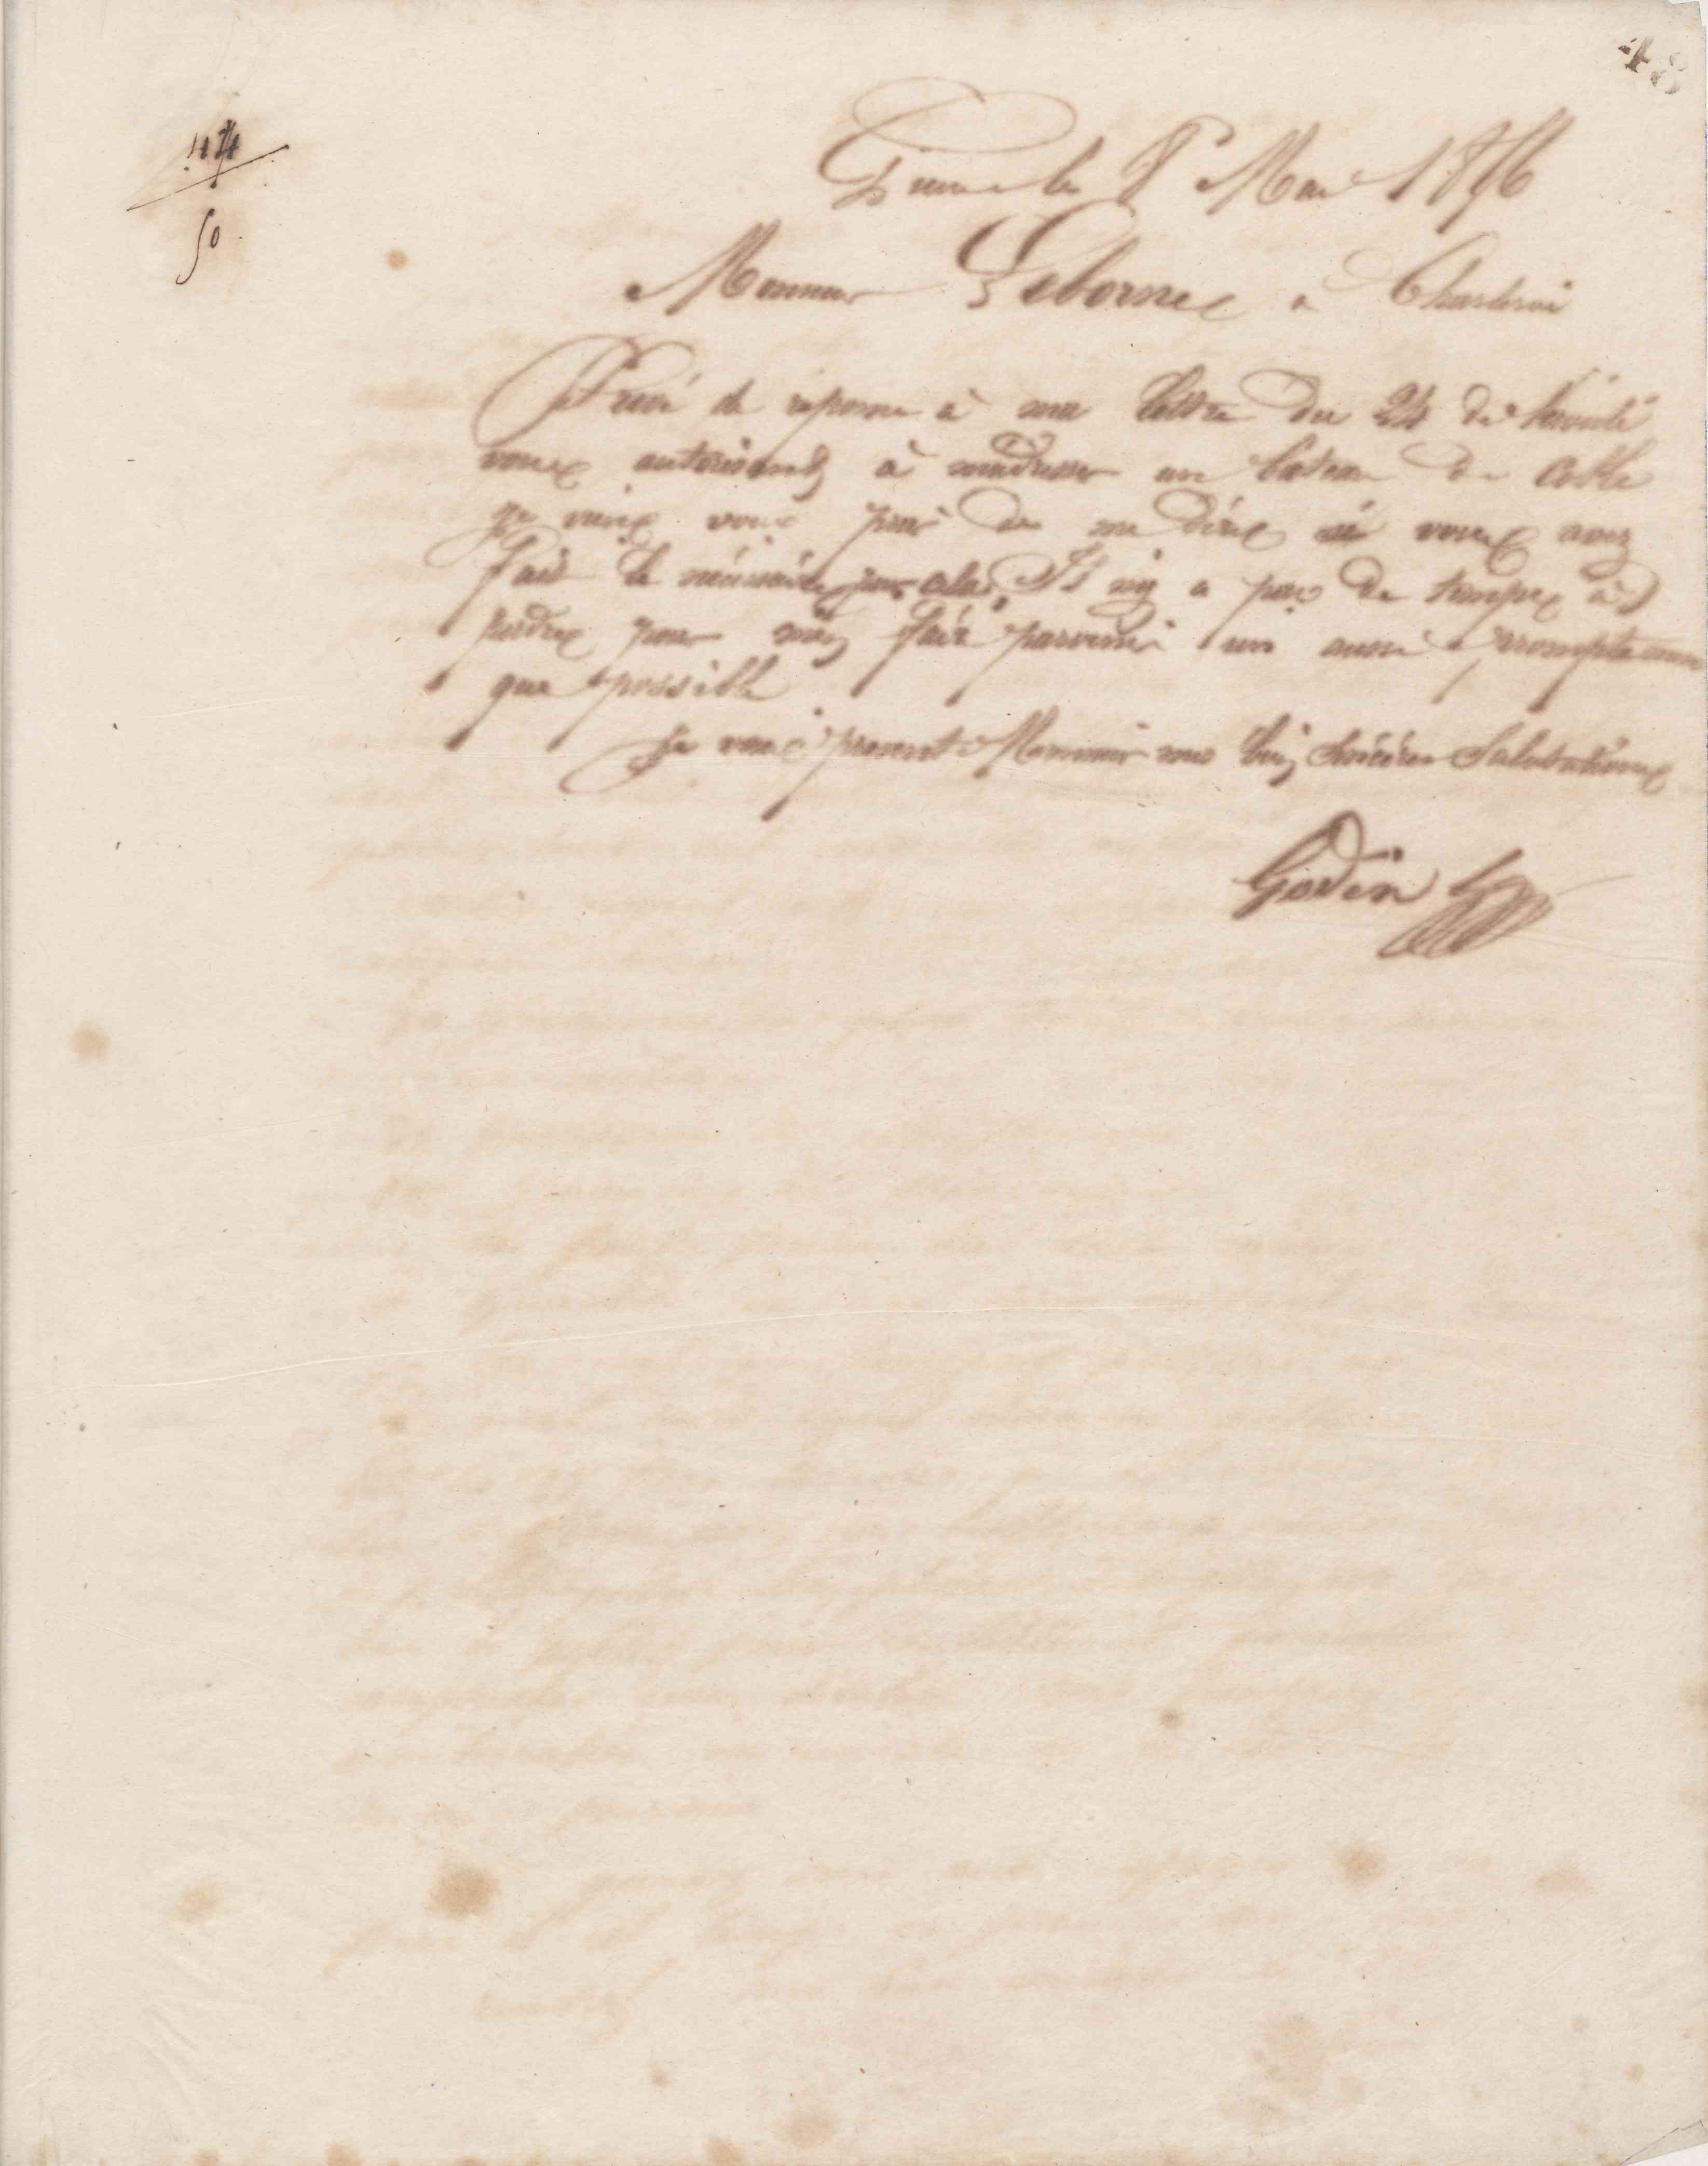 48
44
50
Guise le 8 Mai 1846
Monsieur Leborne à Charleroi
Privé de réponse à ma lettre du 24 de
vous autorisant à un bateau de
je viens vous prier de me dire si vous avez
fait le nécessaire pour cela. Il n'y a pas de temps à
perdre pour m'en faire parvenir un aussi promptement
que possible
Je vous présente Monsieur mes bien sincères Salutations
Godin